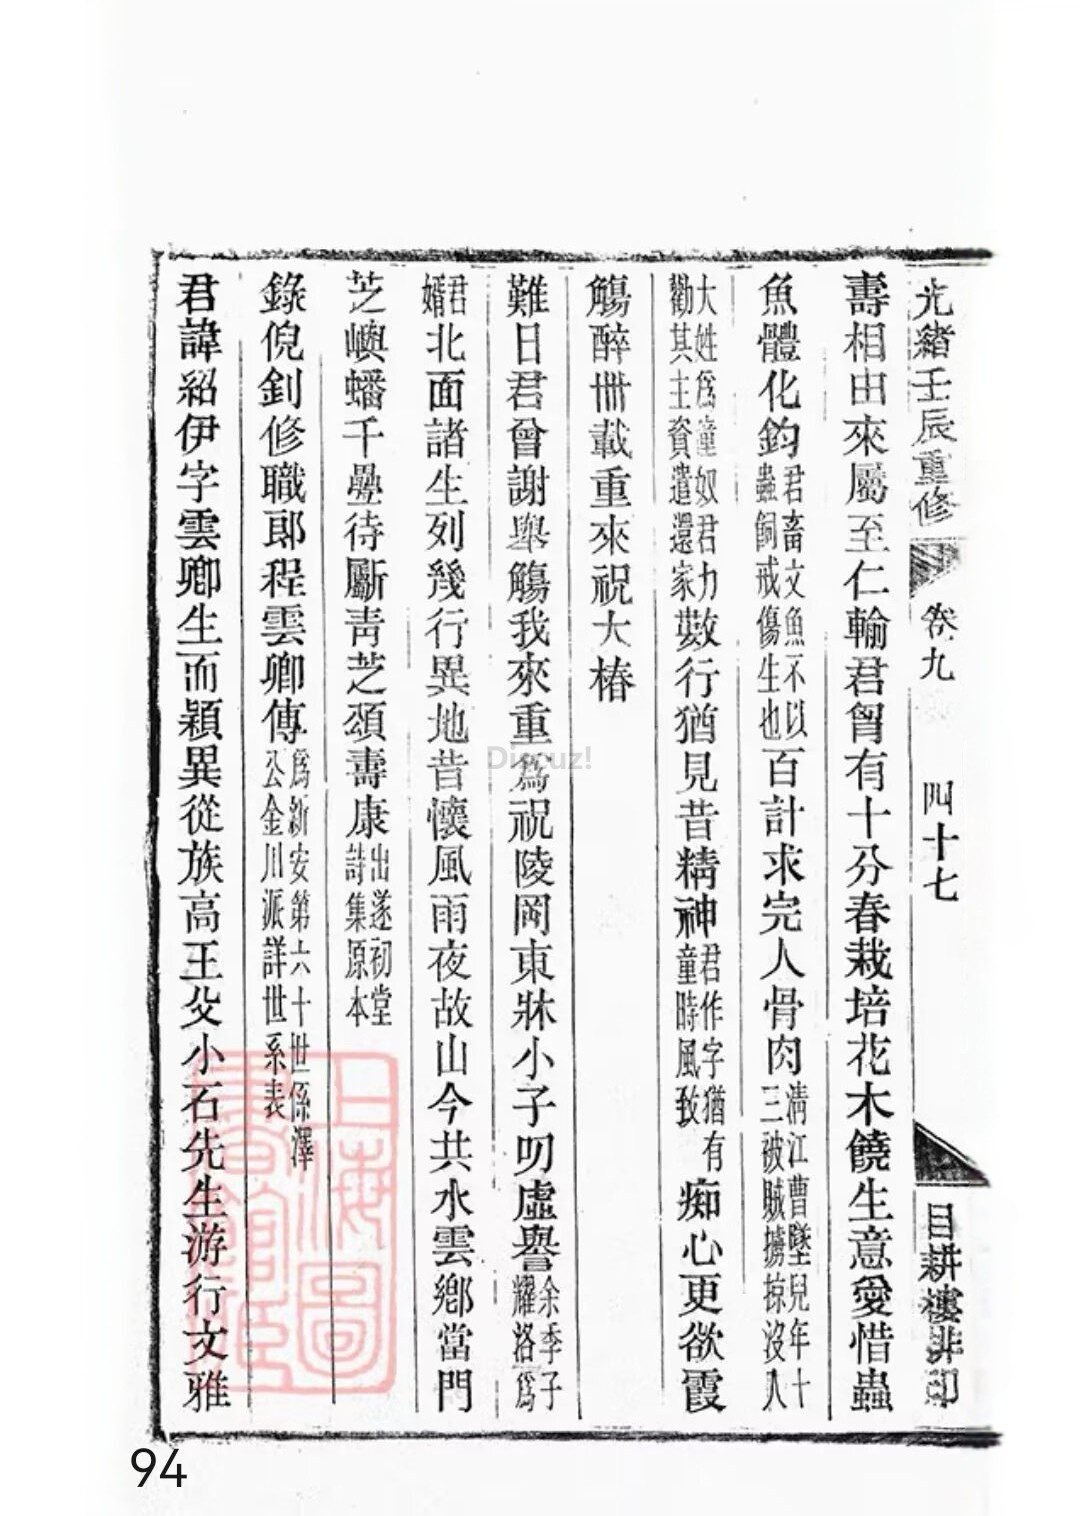 光緒壬辰重修 卷九 四十七 目耕樓排印
壽相由來屬至仁輸君胷有十分春栽培花木饒生意愛惜蟲
魚體化鈞君畜文魚不以蟲飼戒傷生也百計求完人骨肉清江曹墜兒年十三被賊擄掠沒入
大姓爲童奴君力勸其主資遣還家數行猶見昔精神君作字猶有童時風致痴心更欲霞
觴醉卌載重來祝大椿
難日君曾謝舉觴我來重爲祝陵岡東牀小子叨虛譽余季子耀洛爲
君婿北面諸生列幾行異地昔懷風雨夜故山今共水雲鄉當門
芝嶼蟠千疊待斸青芝頌壽康出遂初堂詩集原本
錄倪釗修職郎程雲卿傳爲新安第六十世係澤公金川派詳世系表
君諱紹伊字雲卿生而穎異從族高王父小石先生游行文雅
上海圖書館藏
Discuz!
94